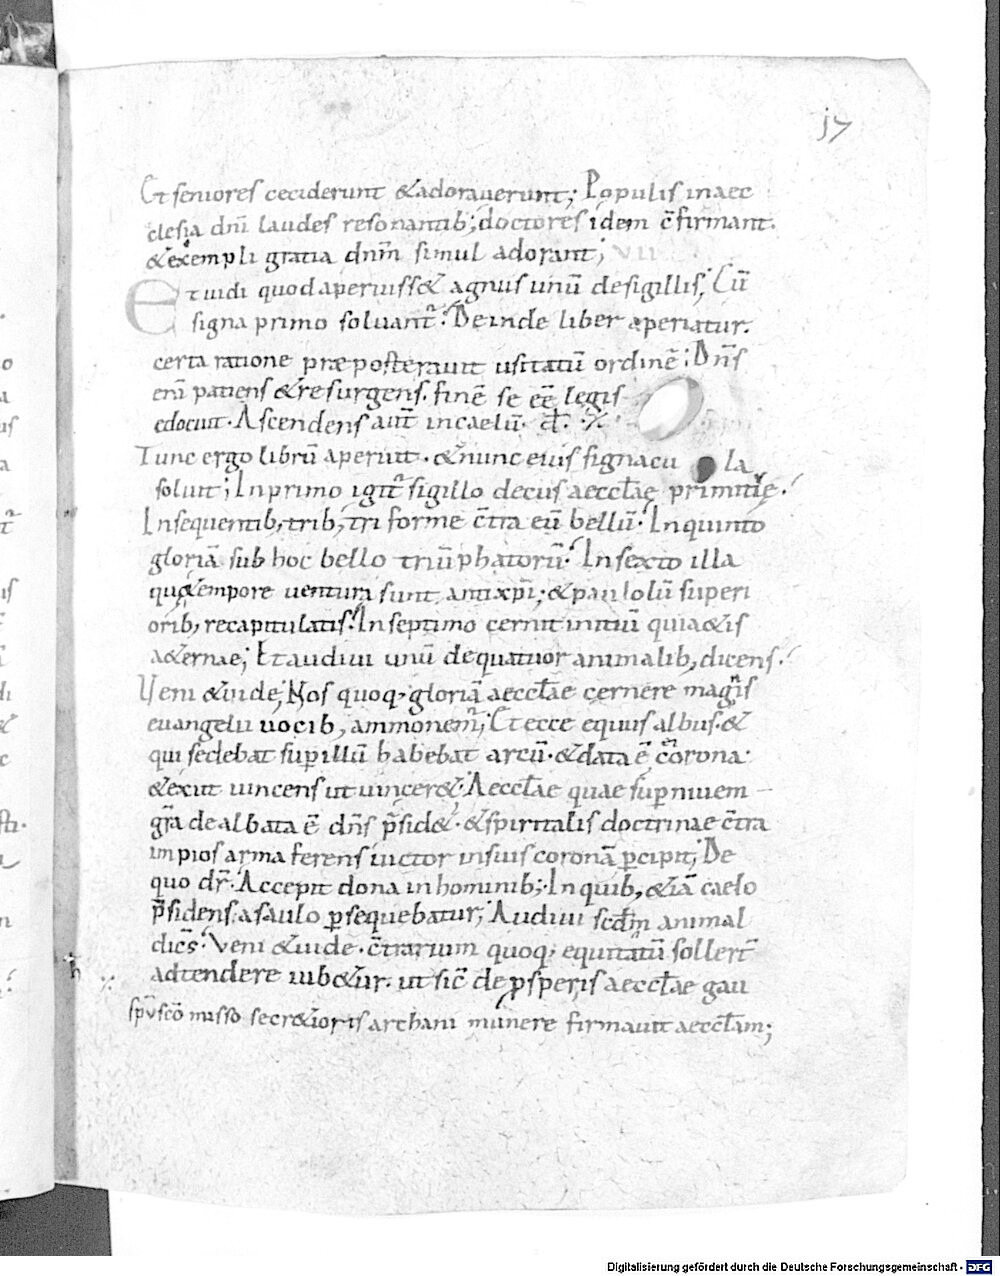 17
Et seniores ceciderunt &adorauerunt; Populis inaec
clesia dnī laudes resonantib; doctores idem c̄firmant.
&exempli gratia dnm̄ simul adorant; VII
Et uidi quod aperuiss& agnus unū desigillis; Cū
signa primo soluant᷑. Deinde liber aperiatur.
certa ratione præposterauit usitatū ordinē; Dn̄s
eni patiens &resurgens. finē se eē legis
edocuit. Ascendens aut̄ incaelū.
Tunc ergo librū aperuit. &nunc eius signacu la
soluit; Inprimo igit᷑ sigillo decus aeccłae primitię.
Insequentib; trib; triforme c̄tra eū bellū. Inquinto
gloriā sub hoc bello triūphatorū. Insexto illa
quę&empore uentura sunt antixp̄i; &paulolū superi
orib; recapitulatis. Inseptimo cernit initiū quia&is
a&ernae; Et audiui unū dequatuor animalib; dicens.
Veni &uide; Nos quoq; gloriā aeccłae cernere magn̄is
euangelii uocib; ammonem᷑; Et ecce equus albus. &
qui sedebat sup̱ illū habebat arcū. &data ē corona.
&exiit uincens ut uincer&. Aeccłae quae sup̱niuem
gr̄a dealbata ē dn̄s p̄sid&. &spiritalis doctrinae c̄tra
impios arma ferens uictor insuis coronā p̱cipit; De
quo dr̄. Accepit dona inhominib; Inquib; &iā caelo
p̄sidens asaulo p̱sequebatur; Audiui scd̄m animal
dicēs. Veni &uide. c̄trarium quoq; equitatū sollert᷑
adtendere iub&ur. ut sic̄ de p̱speris aeccłae gau
sp̄u sc̄o misso secr&ioris archani munere firmauit aeccłam;
Digitalisierung gefördert durch die Deutsche Forschungsgemeinschaft - DFG